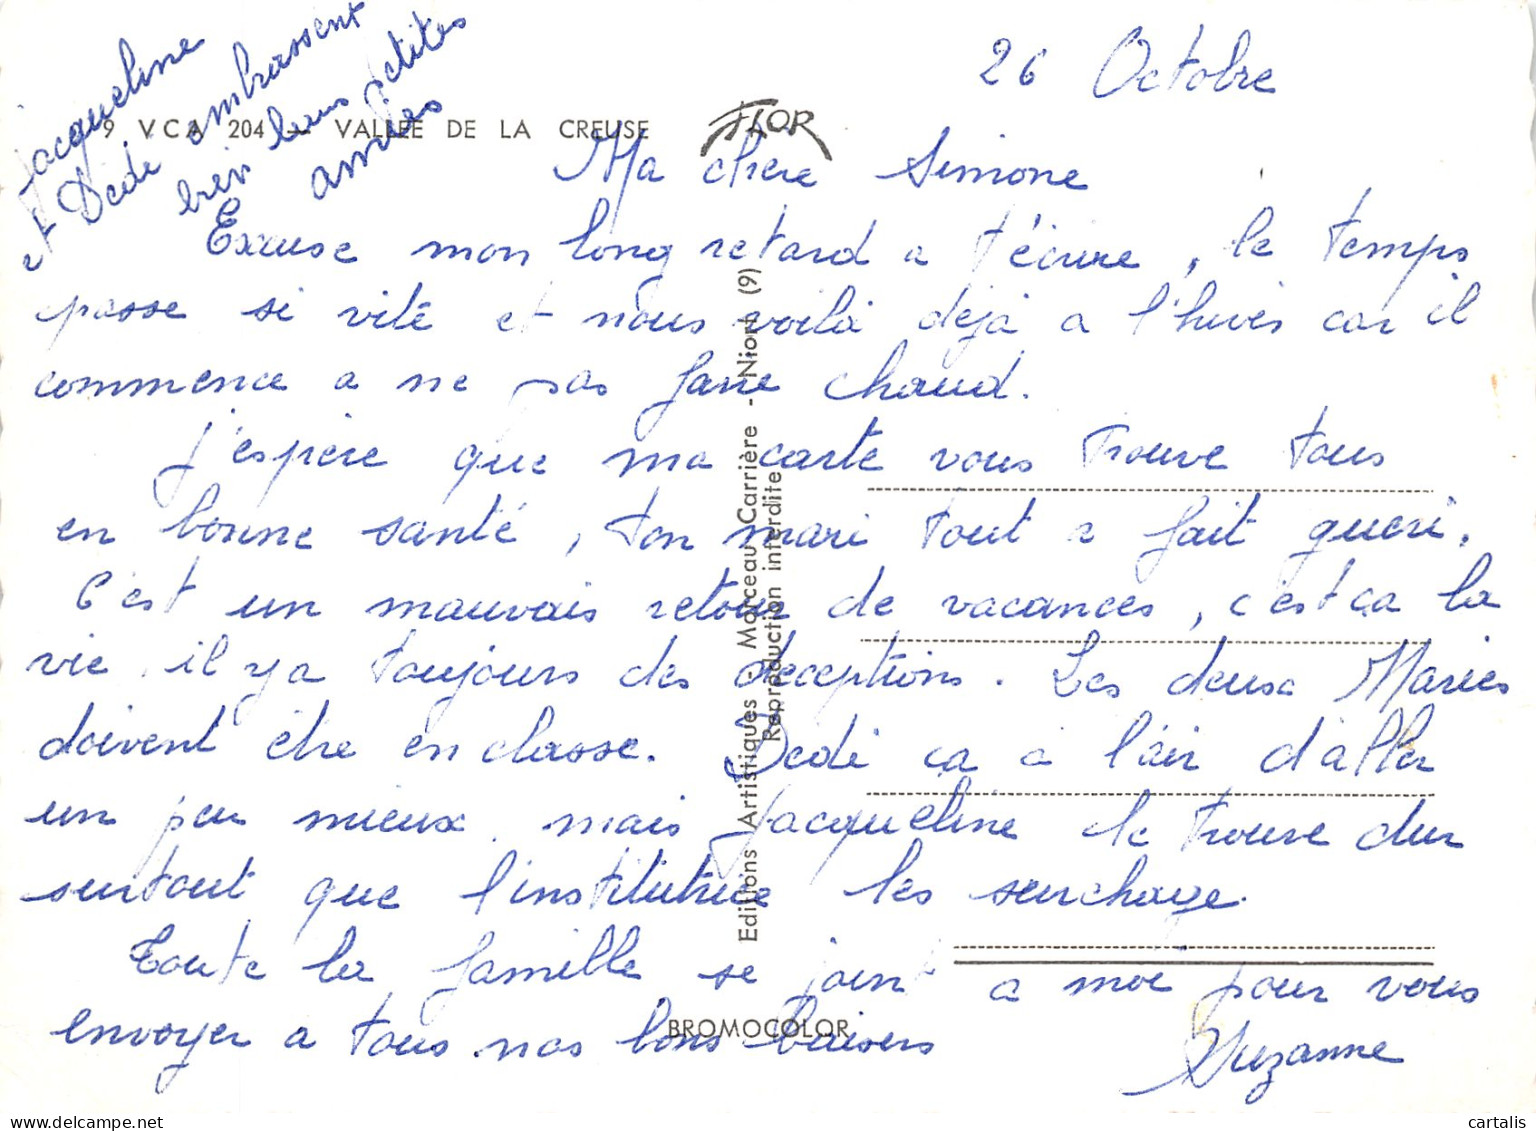 26 Octobre
Jacqueline
et Dédé embrassent
bien leurs petites
amies
9 VCA 204 — VALLÉE DE LA CREUSE
FLOR
Ma chère Simone
Excuse mon long retard a t'écrire, le temps
passe si vite et nous voilà déjà a l'hiver car il
commence a ne pas faire chaud.
J'espère que ma carte vous trouve tous
en bonne santé, ton mari tout a fait gueri.
C'est un mauvais retour de vacances, c'est ça la
vie, il y a toujours des deceptions. Les deux Maries
doivent être en classe. Dédé ça a l'air d'aller
un peu mieux, mais Jacqueline le trouve dur
surtout que l'institutrice les surcharge.
Toute la famille se joint a moi pour vous
envoyer a tous nos bons baisers
Suzanne
Editions Artistiques - Marceau Carrière - Niort (9)
Reproduction interdite
BROMOCOLOR
cartalis